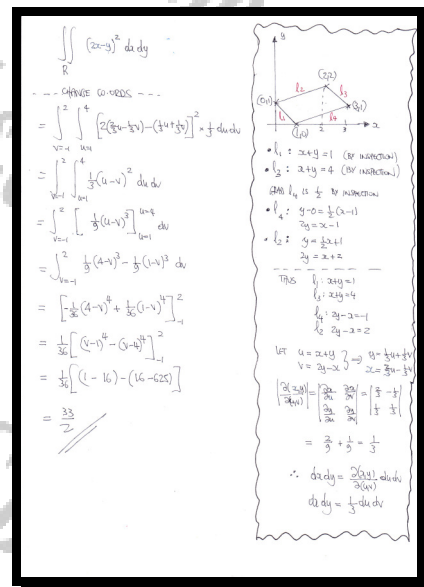 ∬_R (2x-y)² dx dy
--- CHANGE CO-ORDS ---
= ∫_{v=-1}^{2} ∫_{u=1}^{4} [2(⅔u-⅓v)-(⅓u+⅓v)]² × ⅓ du dv
= ∫_{v=-1}^{2} ∫_{u=1}^{4} ⅓(u-v)² du dv
= ∫_{v=-1}^{2} [ 1/9 (u-v)³ ]_{u=1}^{u=4} dv
= ∫_{v=-1}^{2} 1/9 (4-v)³ - 1/9 (1-v)³ dv
= [ -1/36 (4-v)⁴ + 1/36 (1-v)⁴ ]_{-1}^{2}
= 1/36 [ (v-1)⁴ - (v-4)⁴ ]_{-1}^{2}
= 1/36 [ (1-16) - (16-625) ]
= 33/2
y
(2,2)
l₂
l₃
(0,1)
(3,1)
l₁
l₄
(1,0)
2
3
x
• l₁ : x+y=1 (BY INSPECTION)
• l₃ : x+y=4 (BY INSPECTION)
GRAD l₄ IS ½ BY INSPECTION
• l₄ : y-0=½(x-1)
2y=x-1
• l₂ : y=½x+1
2y=x+2
THUS l₁ : x+y=1
l₃ : x+y=4
l₄ : 2y-x=-1
l₂ 2y-x=2
LET u=x+y
v=2y-x } ⇒ y=⅓u+⅓v
x=⅔u-⅓v
|∂(x,y)/∂(u,v)| = |∂x/∂u ∂x/∂v; ∂y/∂u ∂y/∂v| = |⅔ -⅓; ⅓ ⅓|
= 2/9 + 1/9 = 1/3
∴ dx dy = ∂(x,y)/∂(u,v) du dv
dx dy = ⅓ du dv